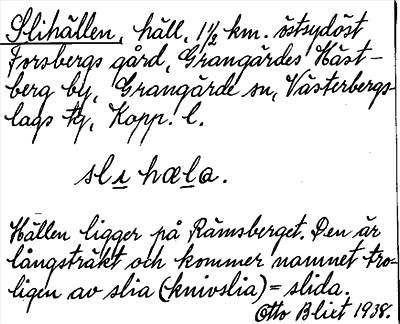 Slihällen, häll, 1½ km. östsydöst
Forsbergs gård, Grangärdes Häst-
berg by, Grangärde sn, Västerbergs-
lags fg, Kopp. l.
slı hæla.
Hällen ligger på Rämsberget. Den är
långsträkt och kommer namnet tro-
ligen av slia (knivslia) = slida.
Otto Blixt 1938.